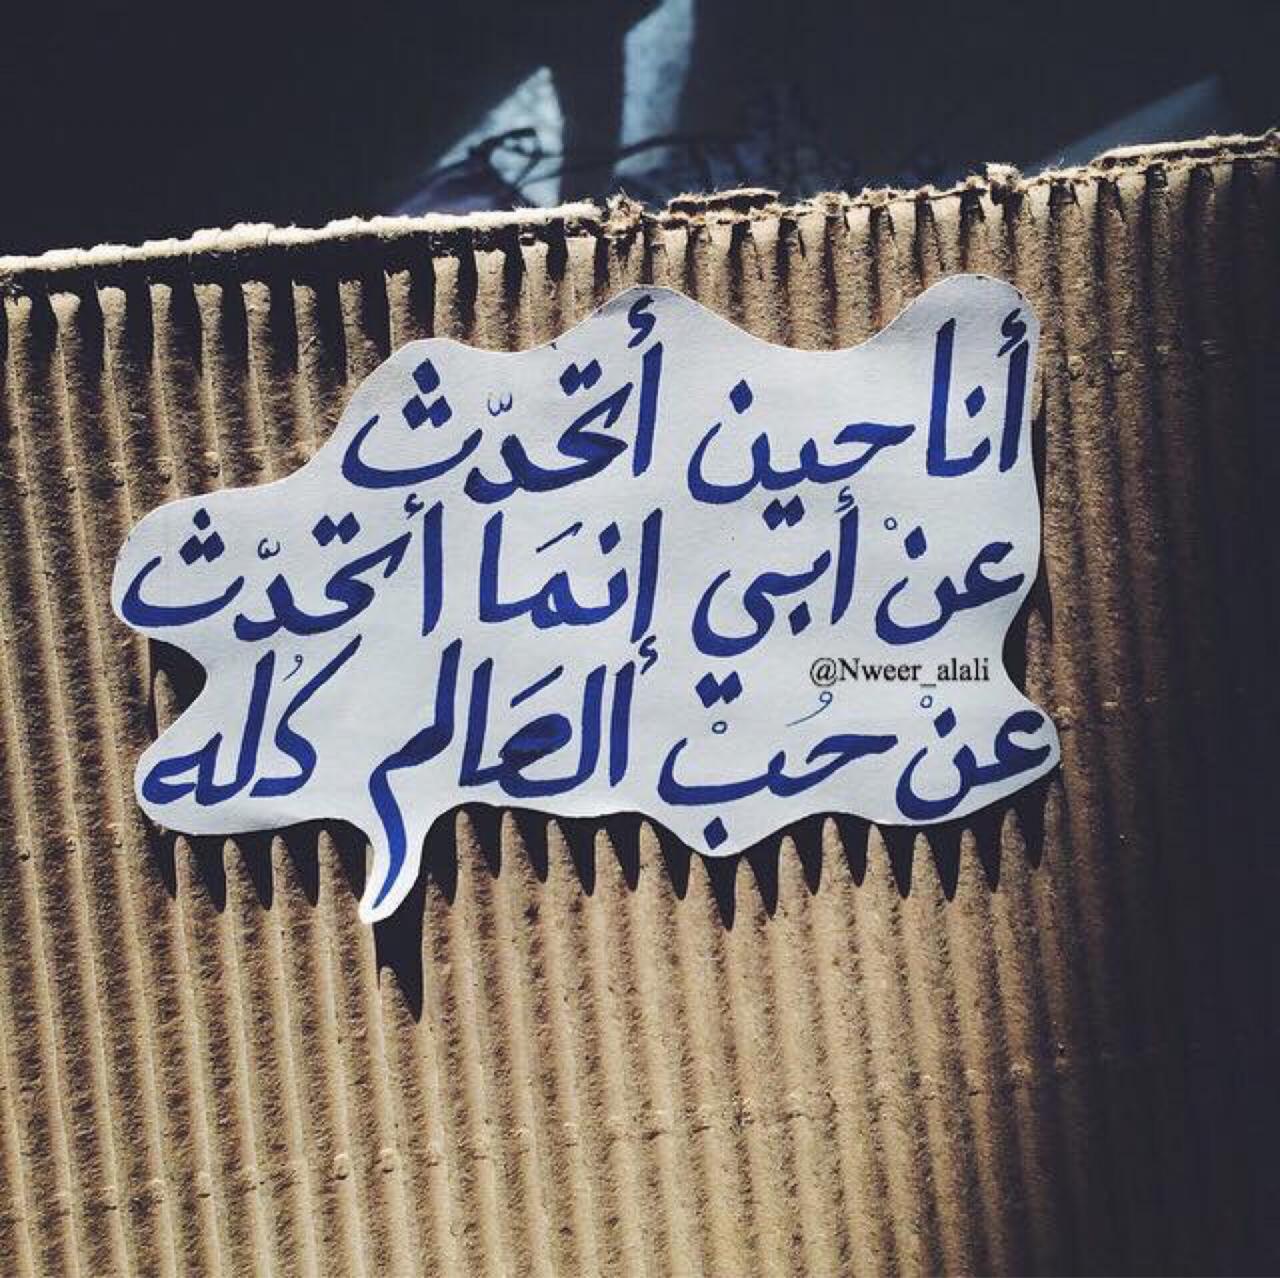 أنا حين أتحدّث
عنْ أبي إنمَا أتحدّث
@Nweer_alali
عنْ حُبْ ألعَالم كُله